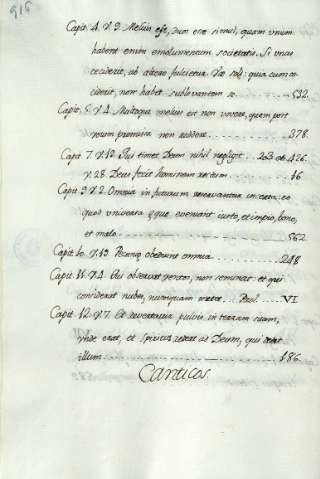 916
Capit. 4. v. 9. Melius est, duos esse simul, quam unum:
habent enim emolumentum societatis. Si unus
ceciderit, ab altero fulcietur. Væ soli: quia cum ce-
ciderit, non habet sublevantem se. 532.
Capit. 5. v. 4. Multoque melius est non vovere, quam post
votum promissa non reddere. 378.
Capit. 7. v. 19. Qui timet Deum nihil negligit. 203. ab. 426.
v. 28. Deus fecit hominem rectum. 16
Capit. 9. v. 2. Omnia in futurum servantur incerta: eo
quod universa æque eveniant iusto, et impio, bono,
et malo. 562
Capit. 10. v. 19. Pecuniæ obediunt omnia. 248
Capit. 11. v. 4. Qui observat ventos, non seminat: et qui
considerat nubes, nunquam metet. Prol. VI.
Capit. 12. v. 7. Et revertatur pulvis in terram suam,
unde erat, et spiritus redeat ad Deum, qui dedit
illum. 186.
Canticos.